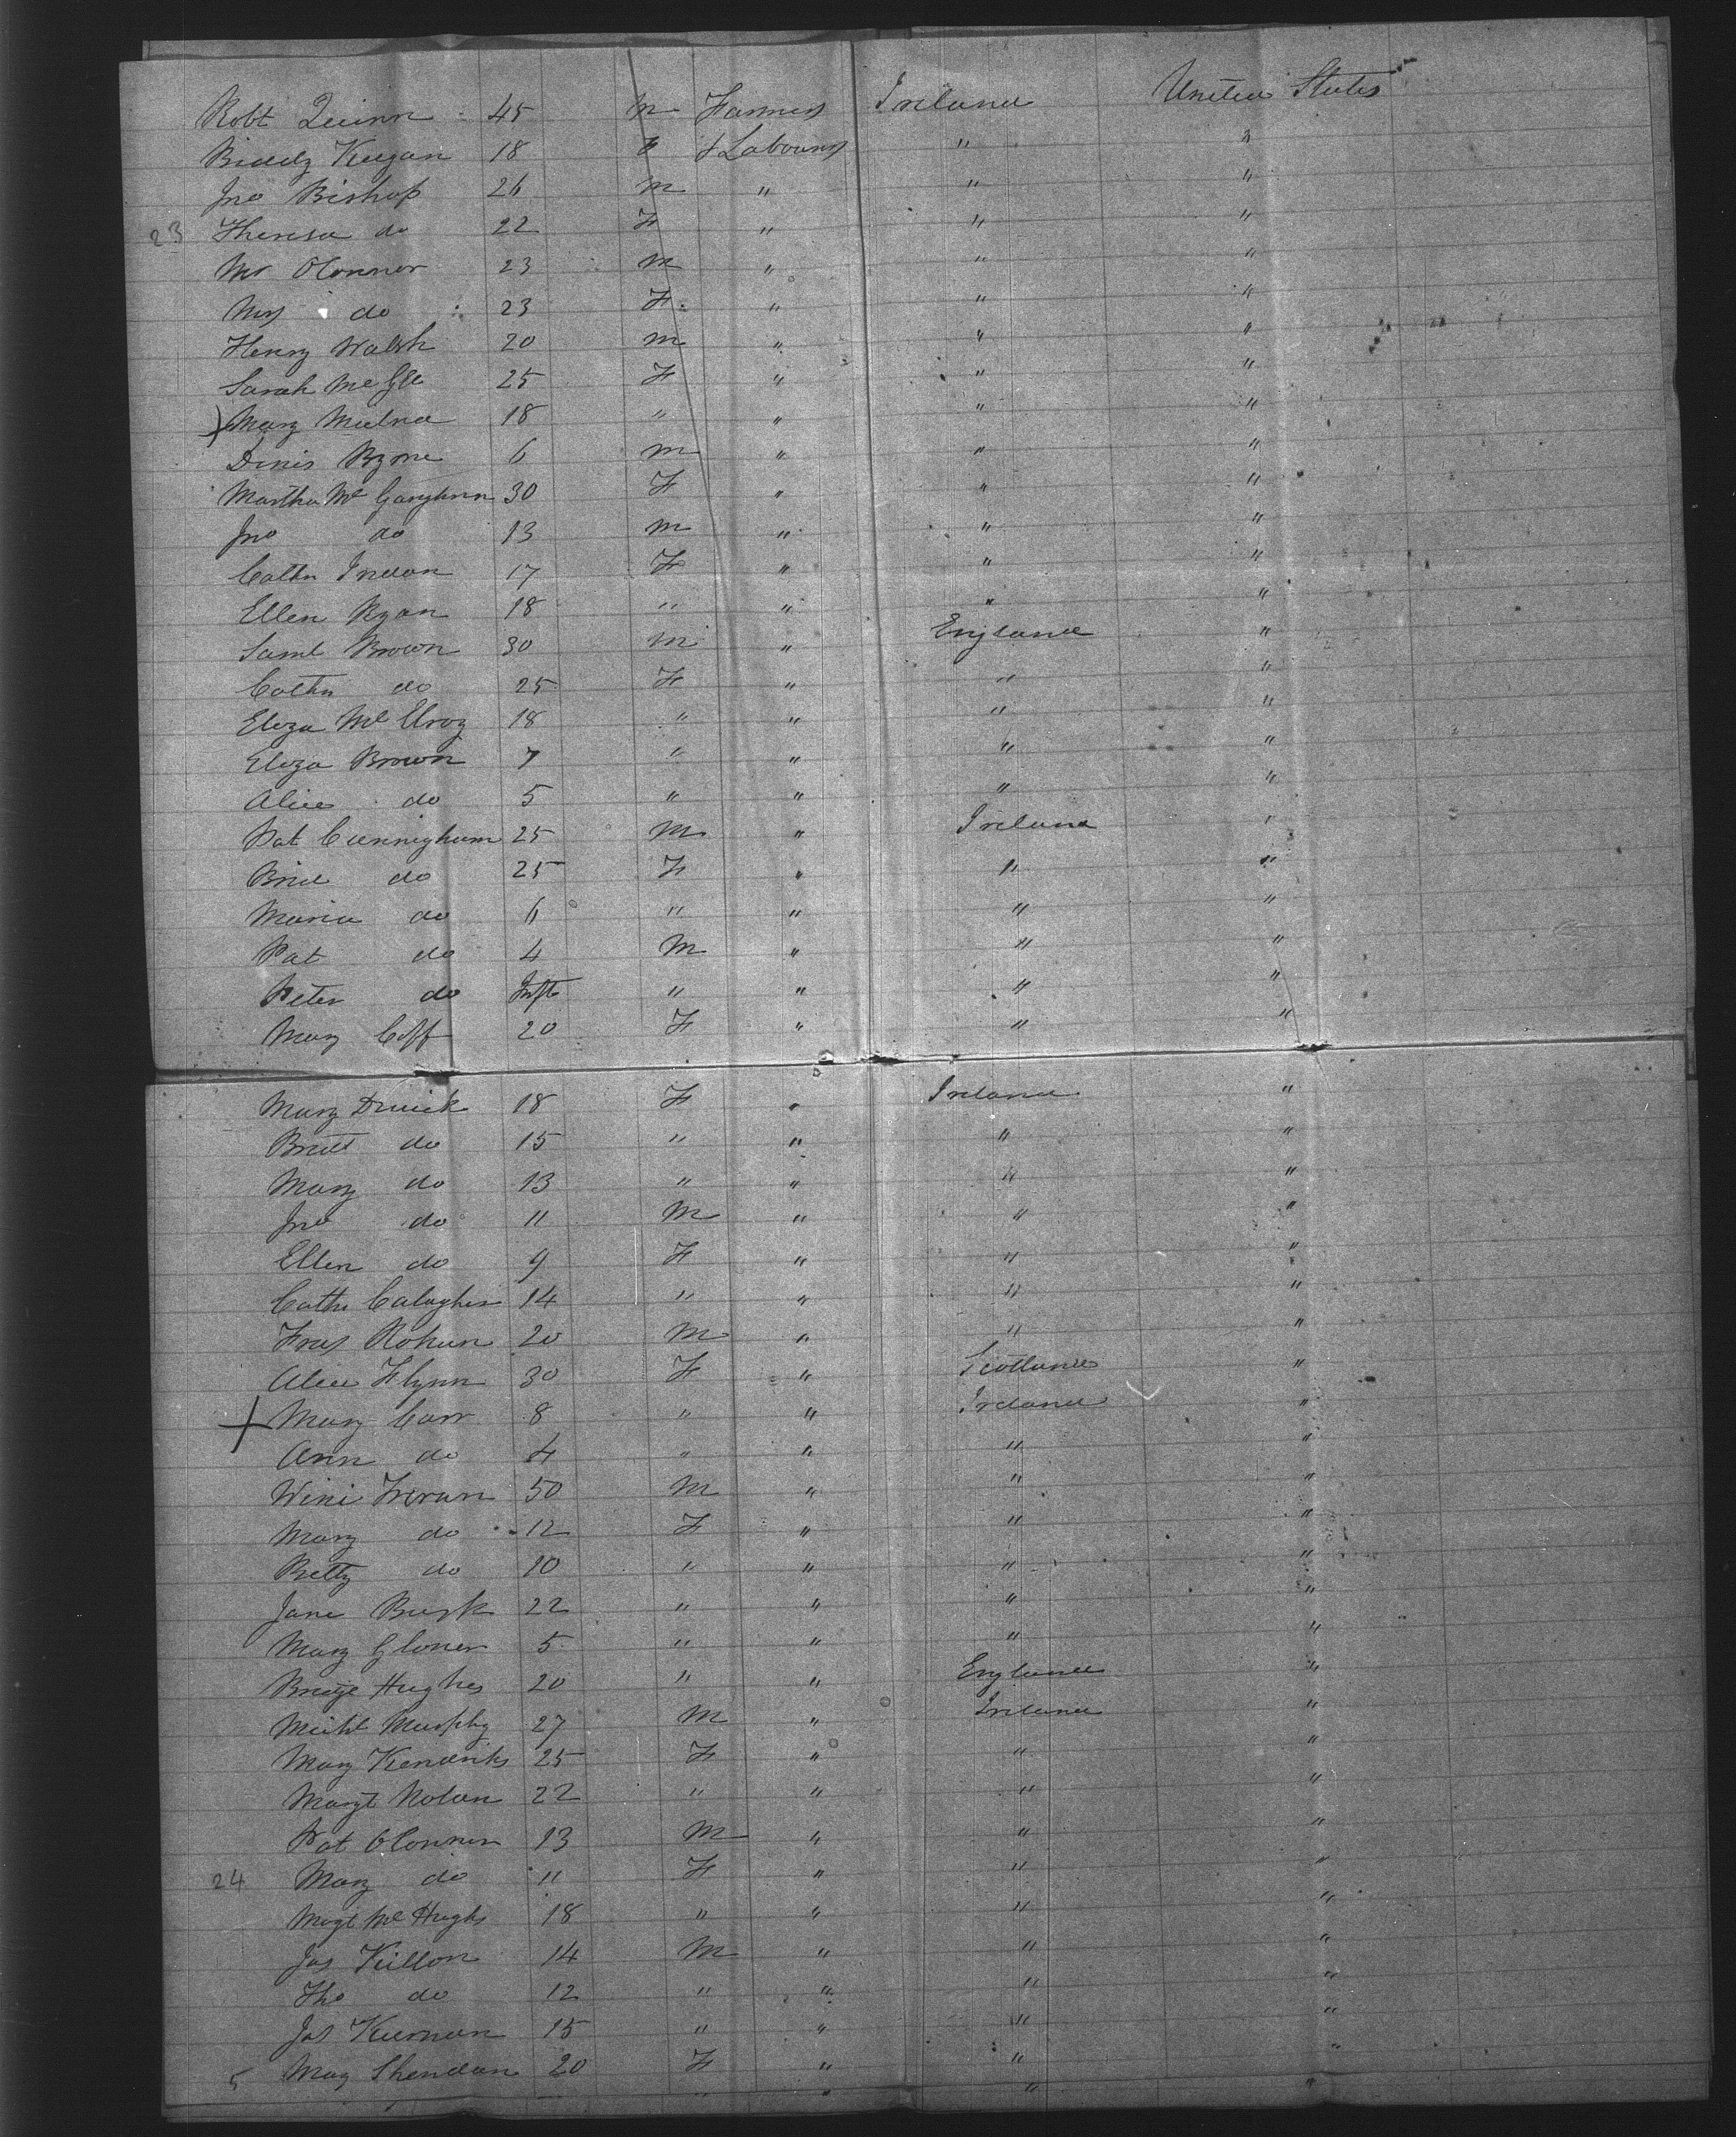 Robt Quinn 45 M Farmers Ireland United States
Biddy Keegan 18 F & Labourers " "
Jno Bishop 26 M " " "
23 Theresa do 22 F " " "
Mr OConnor 23 M " " "
Mrs do 23 F " " "
Henry Walsh 20 M " " "
Sarah Mc 25 F " " "
Mary 18 " " " "
Denis Byrne 6 M " " "
Martha Mc 30 F " " "
Jno do 13 M " " "
Cathn 17 F " " "
Ellen Ryan 18 " " " "
Saml Brown 30 M " England "
Cathn do 25 F " " "
Eliza McElroy 18 " " " "
Eliza Brown 7 " " " "
Alice do 5 " " " "
Pat Cunnigham 25 M " Ireland "
Brid do 25 F " " "
Maria do 6 " " " "
Pat do 4 M " " "
Peter do Inft " " " "
Mary Coff 20 F " " "
Mary 18 F " Ireland "
do 15 " " " "
Mary do 13 " " " "
Jno do 11 M " " "
Ellen do 9 F " " "
Cathn Calaghen 14 " " " "
Fras Rohan 20 M " " "
Alice Flynn 30 F " Scotland "
Mary Carr 8 " " Ireland "
Ann do 4 " " " "
Wini 50 M " " "
Mary do 12 F " " "
Betty do 10 " " " "
Jane Burk 22 " " " "
Mary Glover 5 " " " "
Hughes 20 " " England "
Michl Murphy 27 M " Ireland "
Mary Kendriks 25 F " " "
Margt Nolan 22 " " " "
Pat OConner 13 M " " "
24 Mary do 11 F " " "
Margt McHugh 18 " " " "
Jas Killon 14 M " " "
Tho do 12 " " " "
Jas Kiernan 15 " " " "
5 May Sheridan 20 F " " "
" " " "